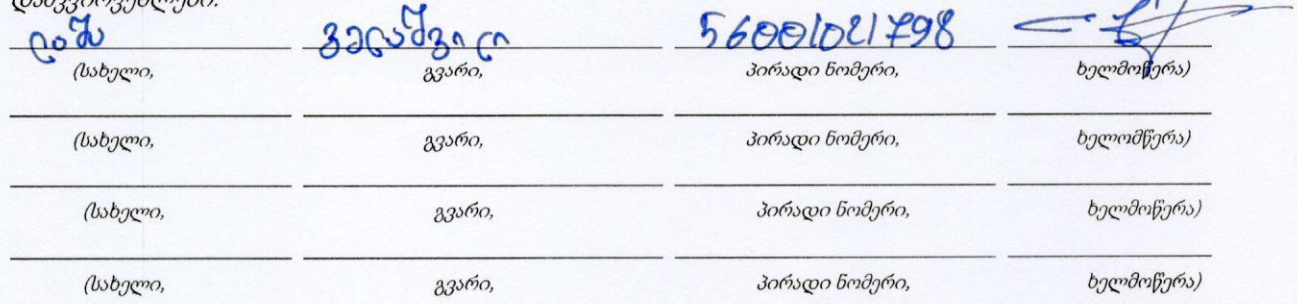 დამკვირვებლები:
ლაშა გელაშვილი 56001021798
(სახელი, გვარი, პირადი ნომერი, ხელმოწერა)
(სახელი, გვარი, პირადი ნომერი, ხელომწერა)
(სახელი, გვარი, პირადი ნომერი, ხელმოწერა)
(სახელი, გვარი, პირადი ნომერი, ხელმოწერა)